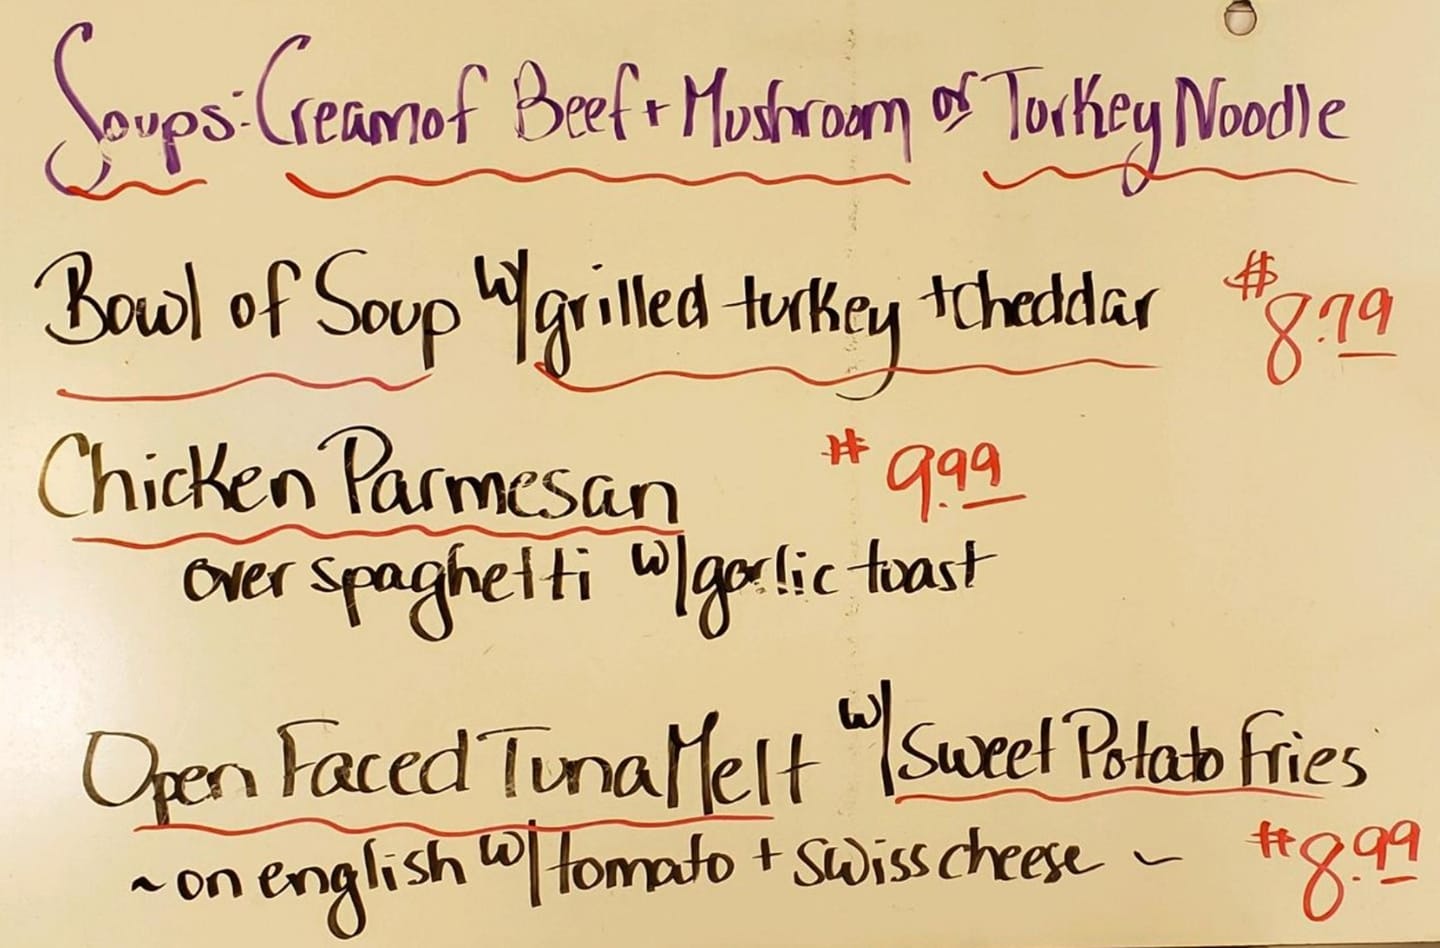 Soups: Cream of Beef + Mushroom or Turkey Noodle
Bowl of Soup w/ grilled turkey + cheddar $8.79
Chicken Parmesan $9.99
over spaghetti w/ garlic toast
Open Faced Tuna Melt w/ Sweet Potato Fries
~ on english w/ tomato + swiss cheese ~ $8.99